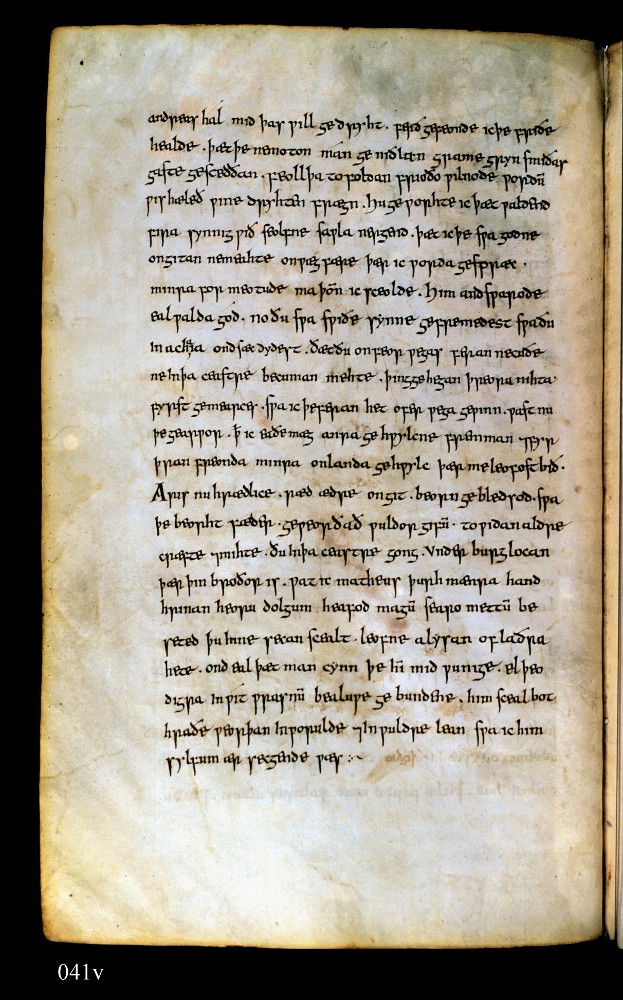 andreas hal mid þas ƿill gedryht . ferð gefeonde ic þe friðe
healde . þæt þe ne moton man ge niðlan grame gryn smiðas
gaste gesceððan . feoll þa to foldan frioðo ƿilnode ƿordū
ƿis hæleð ƿine dryhten frægn . hu geƿorhte ic þæt ƿaldend
fira synnig ƿið seolfne saƿla nergend . þæt ic þe sƿa godne
ongitan nemeahte on ƿæg fære þær ic ƿorda gespræc .
minra for meotude ma þōn ic sceolde . him andsƿarode
eal ƿalda god . no ðu sƿa sƿiðe synne gefremedest sƿa ðu
in achia ondsæc dydest . ðæt ðu on feor ƿegas feran ne cuðe
ne in þa ceastre becuman mehte . þing gehegan þreora nihta
fyrst gemearces . sƿa ic þe feran het ofer ƿega geƿinn . ƿast nu
þe gearƿor . ꝥ ic eaðe mæg anra ge hƿylcne fremman ⁊ fyr
þran freonda minra on landa gehƿylc þær me leofost bið .
Aris nu hrædlice . ræd ædre ongit . beorn gebledsod . sƿa
þe beorht fæder . geƿeorðað ƿuldor gifū . to ƿidan aldre
cræfte ⁊ mihte . ðu in þa ceastre gong . under burg locan
þær þin broðor is . ƿat ic matheus þurh mænra hand
hrinan heoru dolgum heafod magū searo mettū be
seted þu hine secan scealt . leofne alysan of laðra
hete . ond eal þæt man cynn þe hī mid ƿunige . el þeo
digra in ƿit ƿrasnū bealuƿe ge bundene . him sceal bot
hraðe ƿeorþan in ƿorulde ⁊ in ƿuldre lean sƿa ic him
sylfum ær secgende ƿæs :~
041v